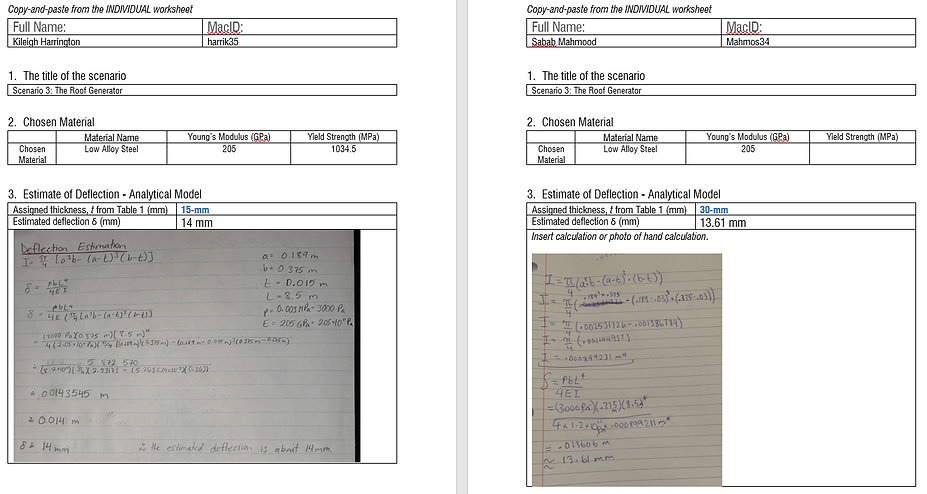 Copy-and-paste from the INDIVIDUAL worksheet
Full Name: MacID:
Kileigh Harrington harrik35
1. The title of the scenario
Scenario 3: The Roof Generator
2. Chosen Material
Material Name Young's Modulus (GPa) Yield Strength (MPa)
Chosen Material Low Alloy Steel 205 1034.5
3. Estimate of Deflection - Analytical Model
Assigned thickness, t from Table 1 (mm) 15-mm
Estimated deflection δ (mm) 14 mm
Deflection Estimation
I = π/4 [a³b - (a-t)³(b-t)]
a = 0.189 m
b = 0.375 m
t = 0.015 m
L = 8.5 m
p = 0.003 MPa = 3000 Pa
δ = pbL⁴ / 4EI
= 0.0143545 m
= 0.014 m
δ ≈ 14 mm
∴ the estimated deflection is about 14mm.
Copy-and-paste from the INDIVIDUAL worksheet
Full Name: MacID:
Sabab Mahmood Mahmos34
1. The title of the scenario
Scenario 3: The Roof Generator
2. Chosen Material
Material Name Young's Modulus (GPa) Yield Strength (MPa)
Chosen Material Low Alloy Steel 205
3. Estimate of Deflection - Analytical Model
Assigned thickness, t from Table 1 (mm) 30-mm
Estimated deflection δ (mm) 13.61 mm
Insert calculation or photo of hand calculation.
I = .000899231 m⁴
δ = PbL⁴
4EI
= (3000Pa)(.375)(8.5)⁴
= .013606 m
≈ 13.61 mm